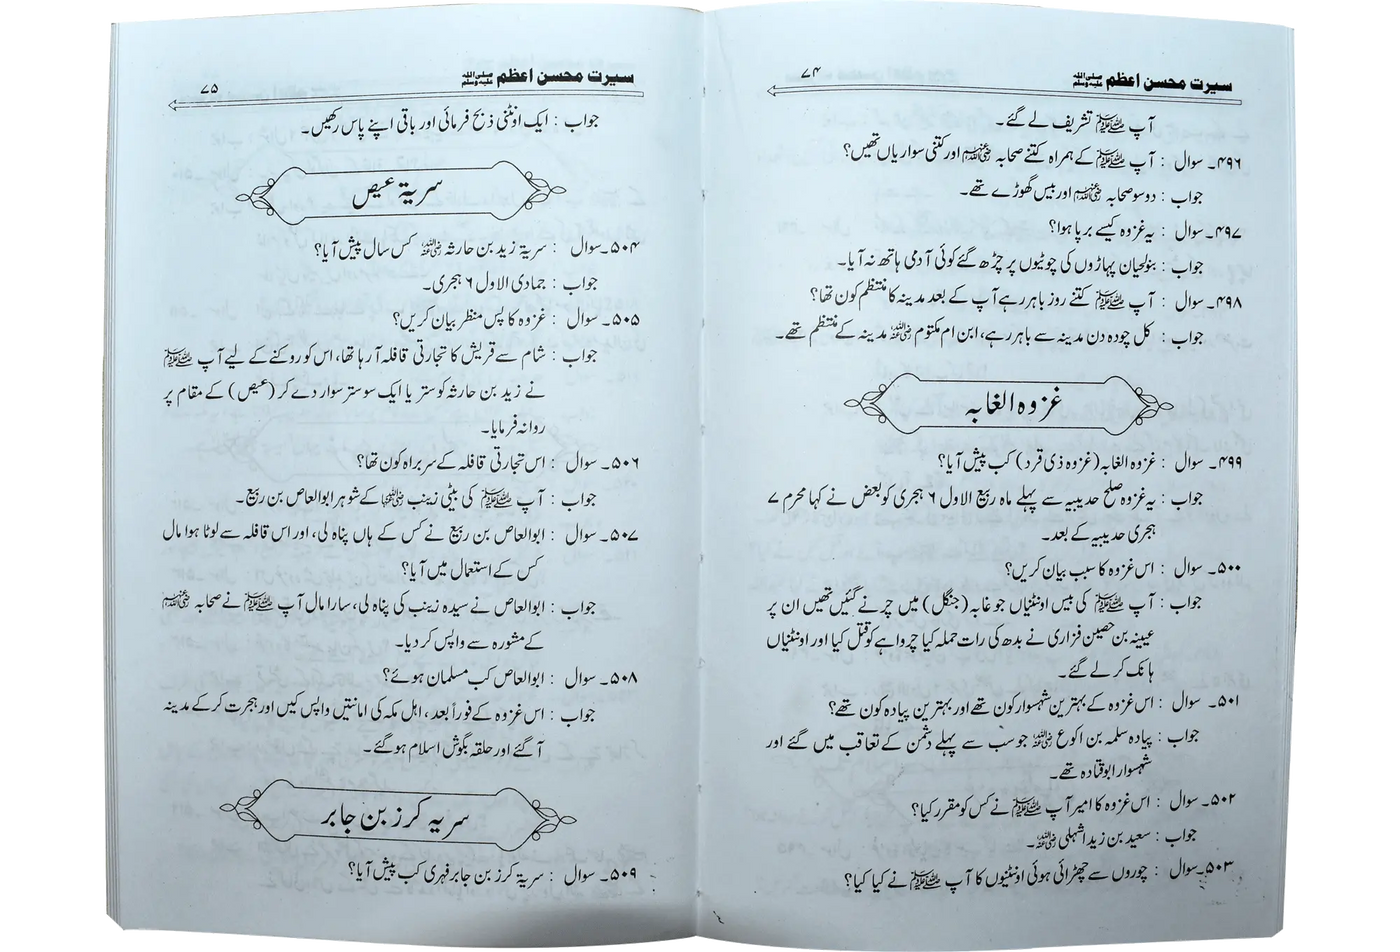 سیرت محسن اعظم ﷺ ۷۴
آپ ﷺ تشریف لے گئے۔
۴۹۶۔ سوال : آپ ﷺ کے ہمراہ کتنے صحابہ رضی اللہ عنہم اور کتنی سواریاں تھیں؟
جواب : دو سو صحابہ رضی اللہ عنہم اور بیس گھوڑے تھے۔
۴۹۷۔ سوال : یہ غزوہ کیسے برپا ہوا؟
جواب : بنولحیان پہاڑوں کی چوٹیوں پر چڑھ گئے کوئی آدمی ہاتھ نہ آیا۔
۴۹۸۔ سوال : آپ ﷺ کتنے روز باہر رہے آپ کے بعد مدینہ کا منتظم کون تھا؟
جواب : کل چودہ دن مدینہ سے باہر رہے، ابن ام مکتوم رضی اللہ عنہ مدینہ کے منتظم تھے۔
غزوہ الغابہ
۴۹۹۔ سوال : غزوہ الغابہ (غزوہ ذی قرد) کب پیش آیا؟
جواب : یہ غزوہ صلح حدیبیہ سے پہلے ماہ ربیع الاول ۶ ہجری کو بعض نے کہا محرم ۷
ہجری حدیبیہ کے بعد۔
۵۰۰۔ سوال : اس غزوہ کا سبب بیان کریں؟
جواب : آپ ﷺ کی بیس اونٹنیاں جو غابہ (جنگل) میں چرنے گئیں تھیں ان پر
عیینہ بن حصین فزاری نے بدھ کی رات حملہ کیا چرواہے کو قتل کیا اور اونٹنیاں
ہانک کر لے گئے۔
۵۰۱۔ سوال : اس غزوہ کے بہترین شہسوار کون تھے اور بہترین پیادہ کون تھے؟
جواب : پیادہ سلمہ بن اکوع رضی اللہ عنہ جو سب سے پہلے دشمن کے تعاقب میں گئے اور
شہسوار ابوقتادہ تھے۔
۵۰۲۔ سوال : اس غزوہ کا امیر آپ ﷺ نے کس کو مقرر کیا؟
جواب : سعید بن زید اشہلی رضی اللہ عنہ۔
۵۰۳۔ سوال : چوروں سے چھڑائی ہوئی اونٹنیوں کا آپ ﷺ نے کیا کیا؟
سیرت محسن اعظم ﷺ ۷۵
جواب : ایک اونٹنی ذبح فرمائی اور باقی اپنے پاس رکھیں۔
سریۃ عیص
۵۰۴۔ سوال : سریۃ زید بن حارثہ رضی اللہ عنہ کس سال پیش آیا؟
جواب : جمادی الاول ۶ ہجری۔
۵۰۵۔ سوال : غزوہ کا پس منظر بیان کریں؟
جواب : شام سے قریش کا تجارتی قافلہ آ رہا تھا، اس کو روکنے کے لیے آپ ﷺ
نے زید بن حارثہ کو ستر یا ایک سو ستر سوار دے کر (عیص) کے مقام پر
روانہ فرمایا۔
۵۰۶۔ سوال : اس تجارتی قافلہ کے سربراہ کون تھا؟
جواب : آپ ﷺ کی بیٹی زینب رضی اللہ عنہا کے شوہر ابوالعاص بن ربیع۔
۵۰۷۔ سوال : ابوالعاص بن ربیع نے کس کے ہاں پناہ لی، اور اس قافلہ سے لوٹا ہوا مال
کس کے استعمال میں آیا؟
جواب : ابوالعاص نے سیدہ زینب کی پناہ لی، سارا مال آپ ﷺ نے صحابہ رضی اللہ عنہم
کے مشورہ سے واپس کر دیا۔
۵۰۸۔ سوال : ابوالعاص کب مسلمان ہوئے؟
جواب : اس غزوہ کے فوراً بعد، اہل مکہ کی امانتیں واپس کیں اور ہجرت کر کے مدینہ
آ گئے اور حلقہ بگوش اسلام ہو گئے۔
سریہ کرز بن جابر
۵۰۹۔ سوال : سریۃ کرز بن جابر فہری کب پیش آیا؟